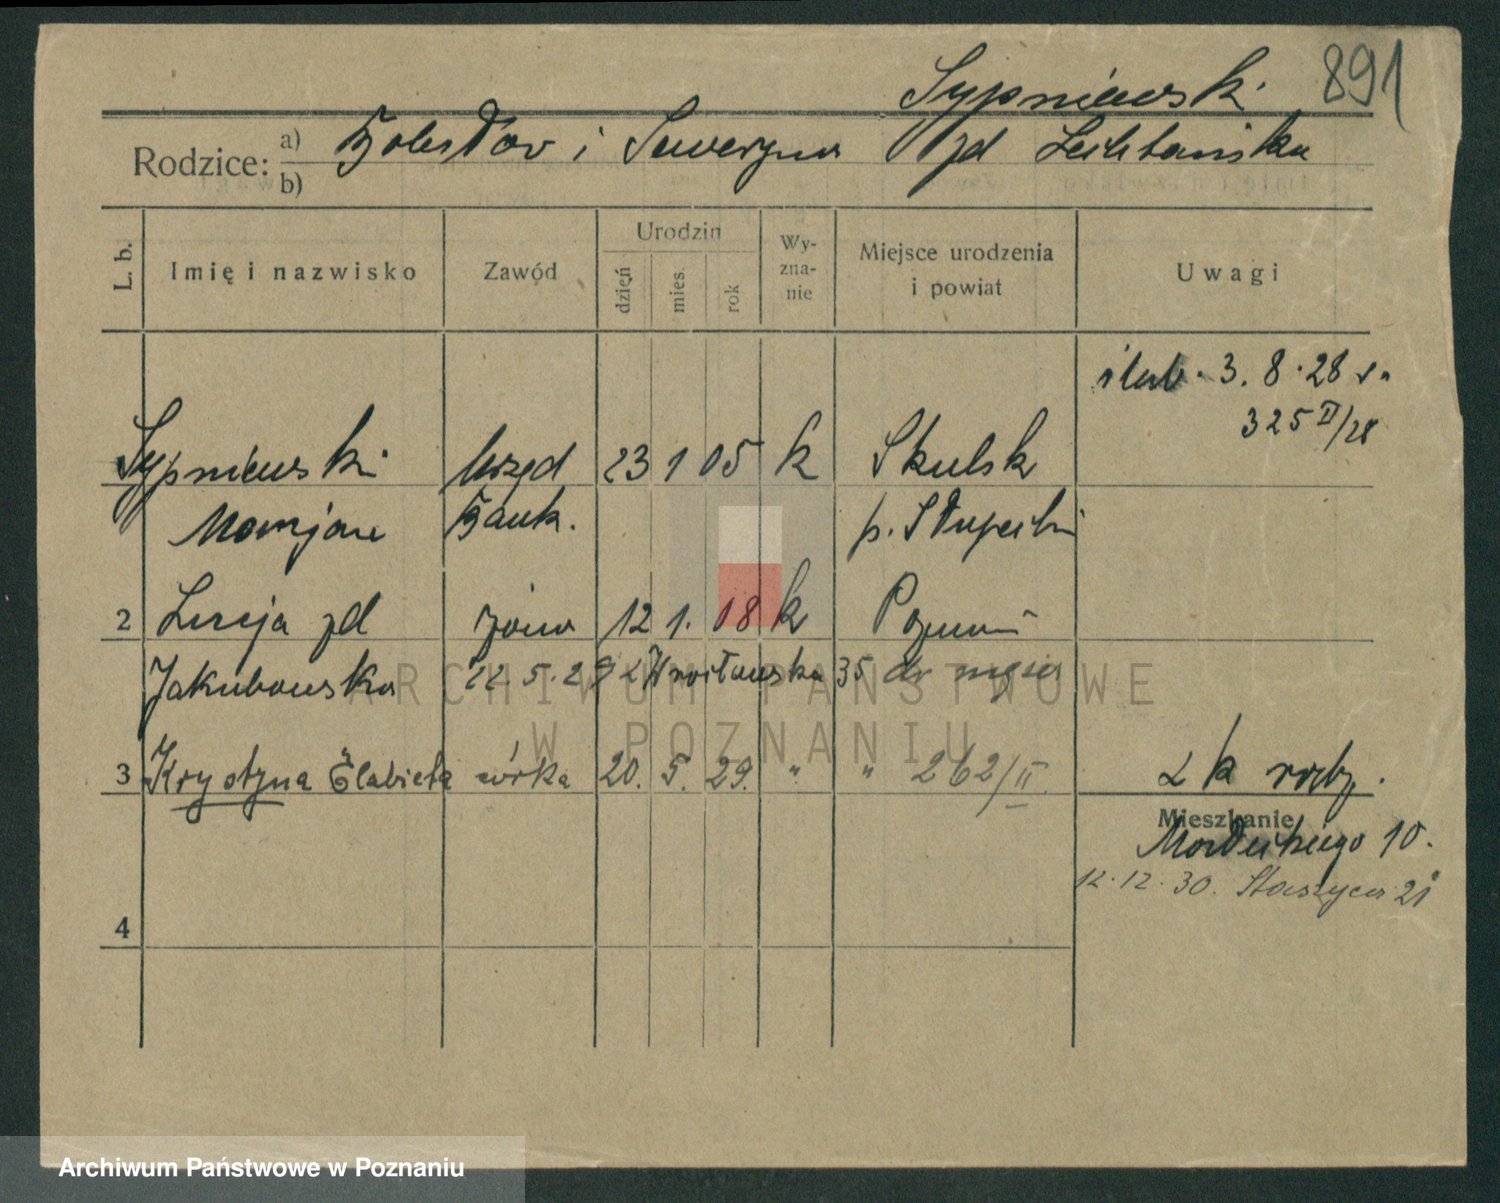 891
Sypniewski
Rodzice: a) Bolesław i Seweryna zd
b)
L. b. Imię i nazwisko Zawód Urodzin dzień mies. rok Wyzna-nie Miejsce urodzenia i powiat Uwagi
ślub. 3. 8. 28 r.
325 II/28
Sypniewski urzęd 23 1 05 k Skulsk
Marjan bank. p. Słupecki
2 Lucja zd żona 12 1. 08 k Poznań
Jakubowska 12. 5. 29 Wrocławska 35
3 Krystyna Elżbieta córka 20. 5. 29. " " 262/II.
Mieszkanie
10.
12. 12. 30. Staszyca 21
4
ARCHIWUM PAŃSTWOWE
W POZNANIU
Archiwum Państwowe w Poznaniu